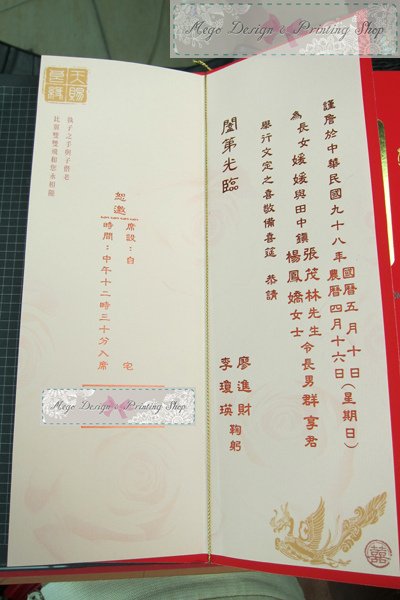 Mego Design & Printing Shop
謹詹於中華民國九十八年國曆五月十日(星期日)
農曆四月十六日
為長女媛媛與田中鎮張茂林先生令長男群享君
楊鳳嬌女士
舉行文定之喜敬備喜筵 恭請
闔第光臨
廖進財
李瓊瑛 鞠躬
天賜良緣
執子之手與子偕老
比翼雙飛和您永相隨
恕邀
席設:自宅
時間:中午十二時三十分入席
Mego Design & Printing Shop
囍